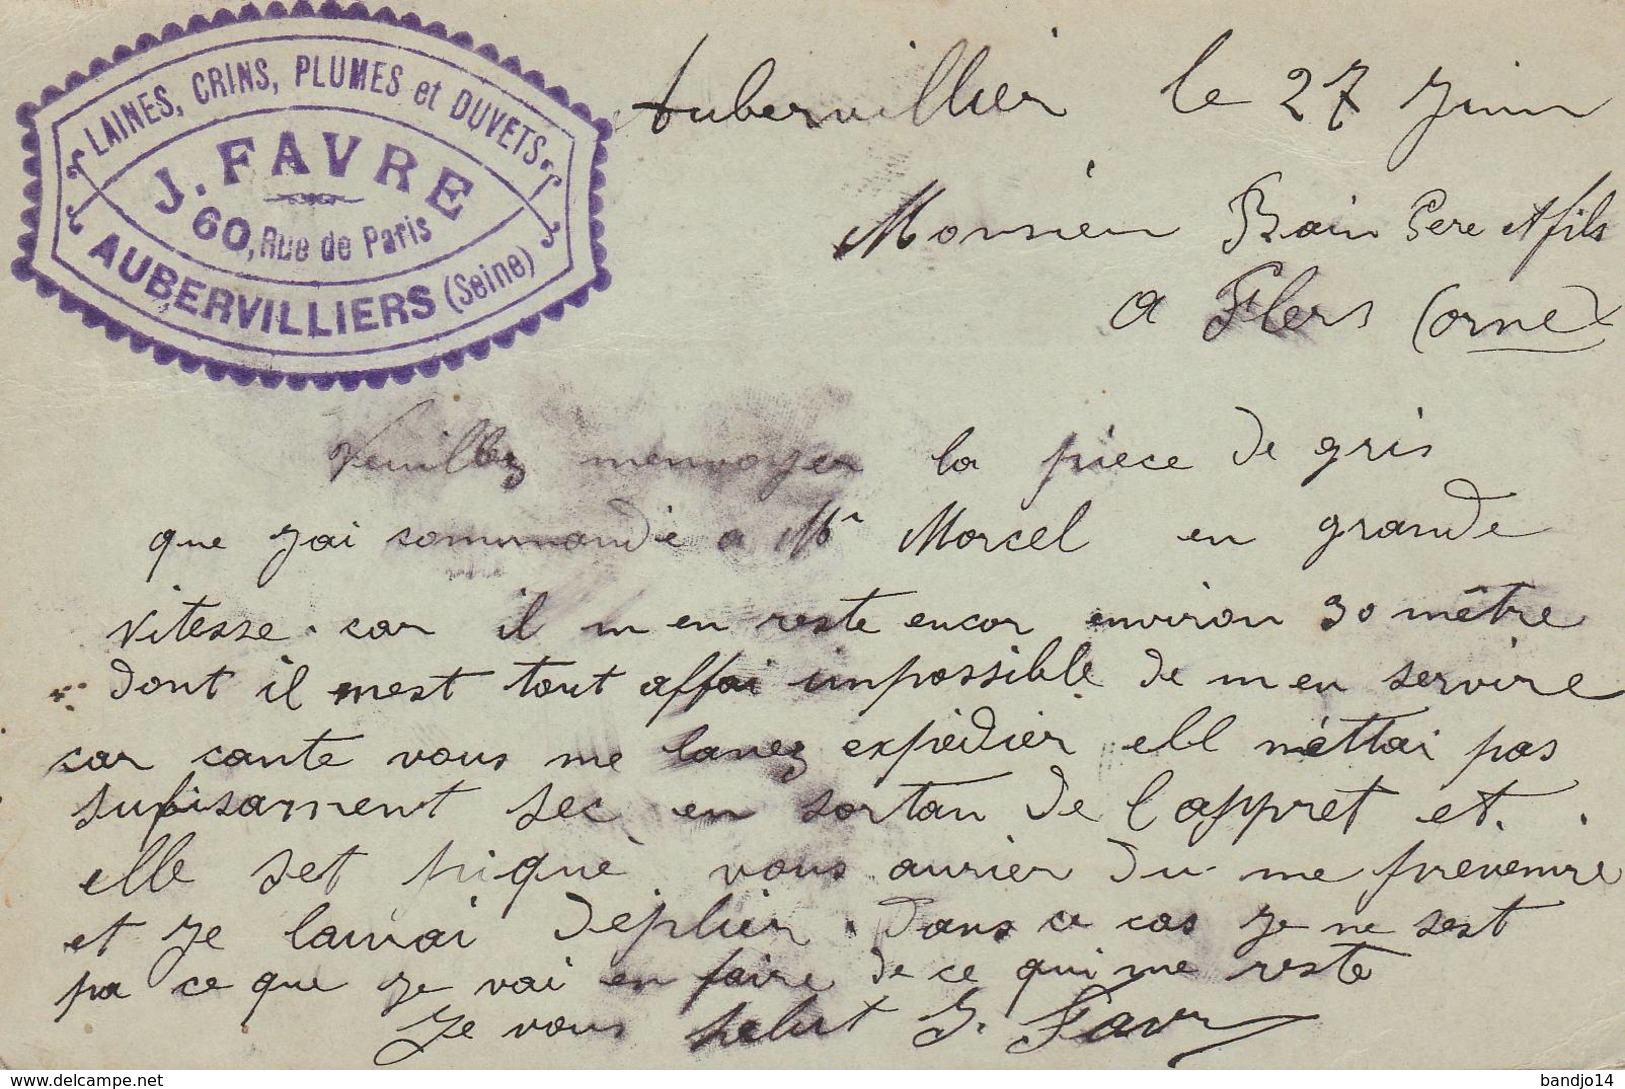 LAINES, CRINS, PLUMES et DUVETS
J. FAVRE
60, Rue de Paris
AUBERVILLIERS (Seine)
Aubervillier le 27 Juin
Monsieur Bain Pere et fils
a Flers (orne)
Veuillez menvoyer la pièce de gris
que J'ai commandé a Mr Marcel en grande
vitesse. car il m en reste encor environ 30 mêtre
dont il mest tout affai impossible de m en servire
car cante vous me lavez expédier ell néttai pas
sufisament sec en sortan de l'appret et.
elle set piqué vous aurier du me prevenire
et Je laurai déplier. dans ce cas Je ne sest
pa ce que Je vai en faire de ce qui me reste
Je vous salut J. Favre
www.delcampe.net
bandjo14